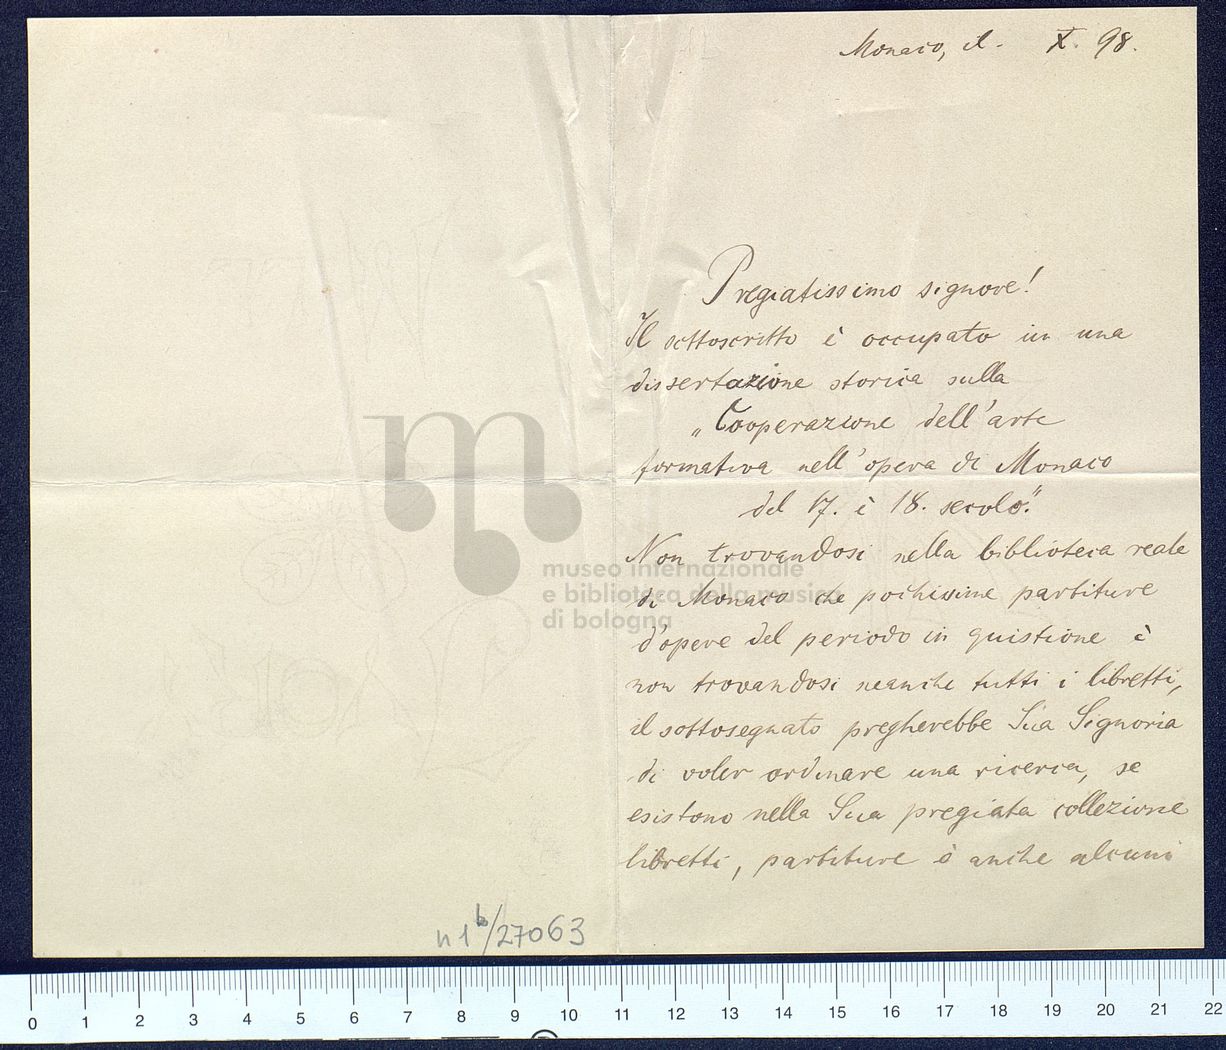 Monaco, il. X. 98.
Pregiatissimo signore!
Il sottoscritto è occupato in una
dissertazione storica sulla
„Cooperazione dell'arte
formativa nell'opera di Monaco
del 17. è 18. secolo."
Non trovandosi nella biblioteca reale
di Monaco che pochissime partiture
d'opere del periodo in quistione è
non trovandosi neanche tutti i libretti,
il sottosegnato pregherebbe Sua Signoria
di voler ordinare una ricerca, se
esistono nella Sua pregiata collezione
libretti, partiture ò anche alcuni
n1b/27063
museo internazionale
e biblioteca della musica
di bologna
0 1 2 3 4 5 6 7 8 9 10 11 12 13 14 15 16 17 18 19 20 21 22